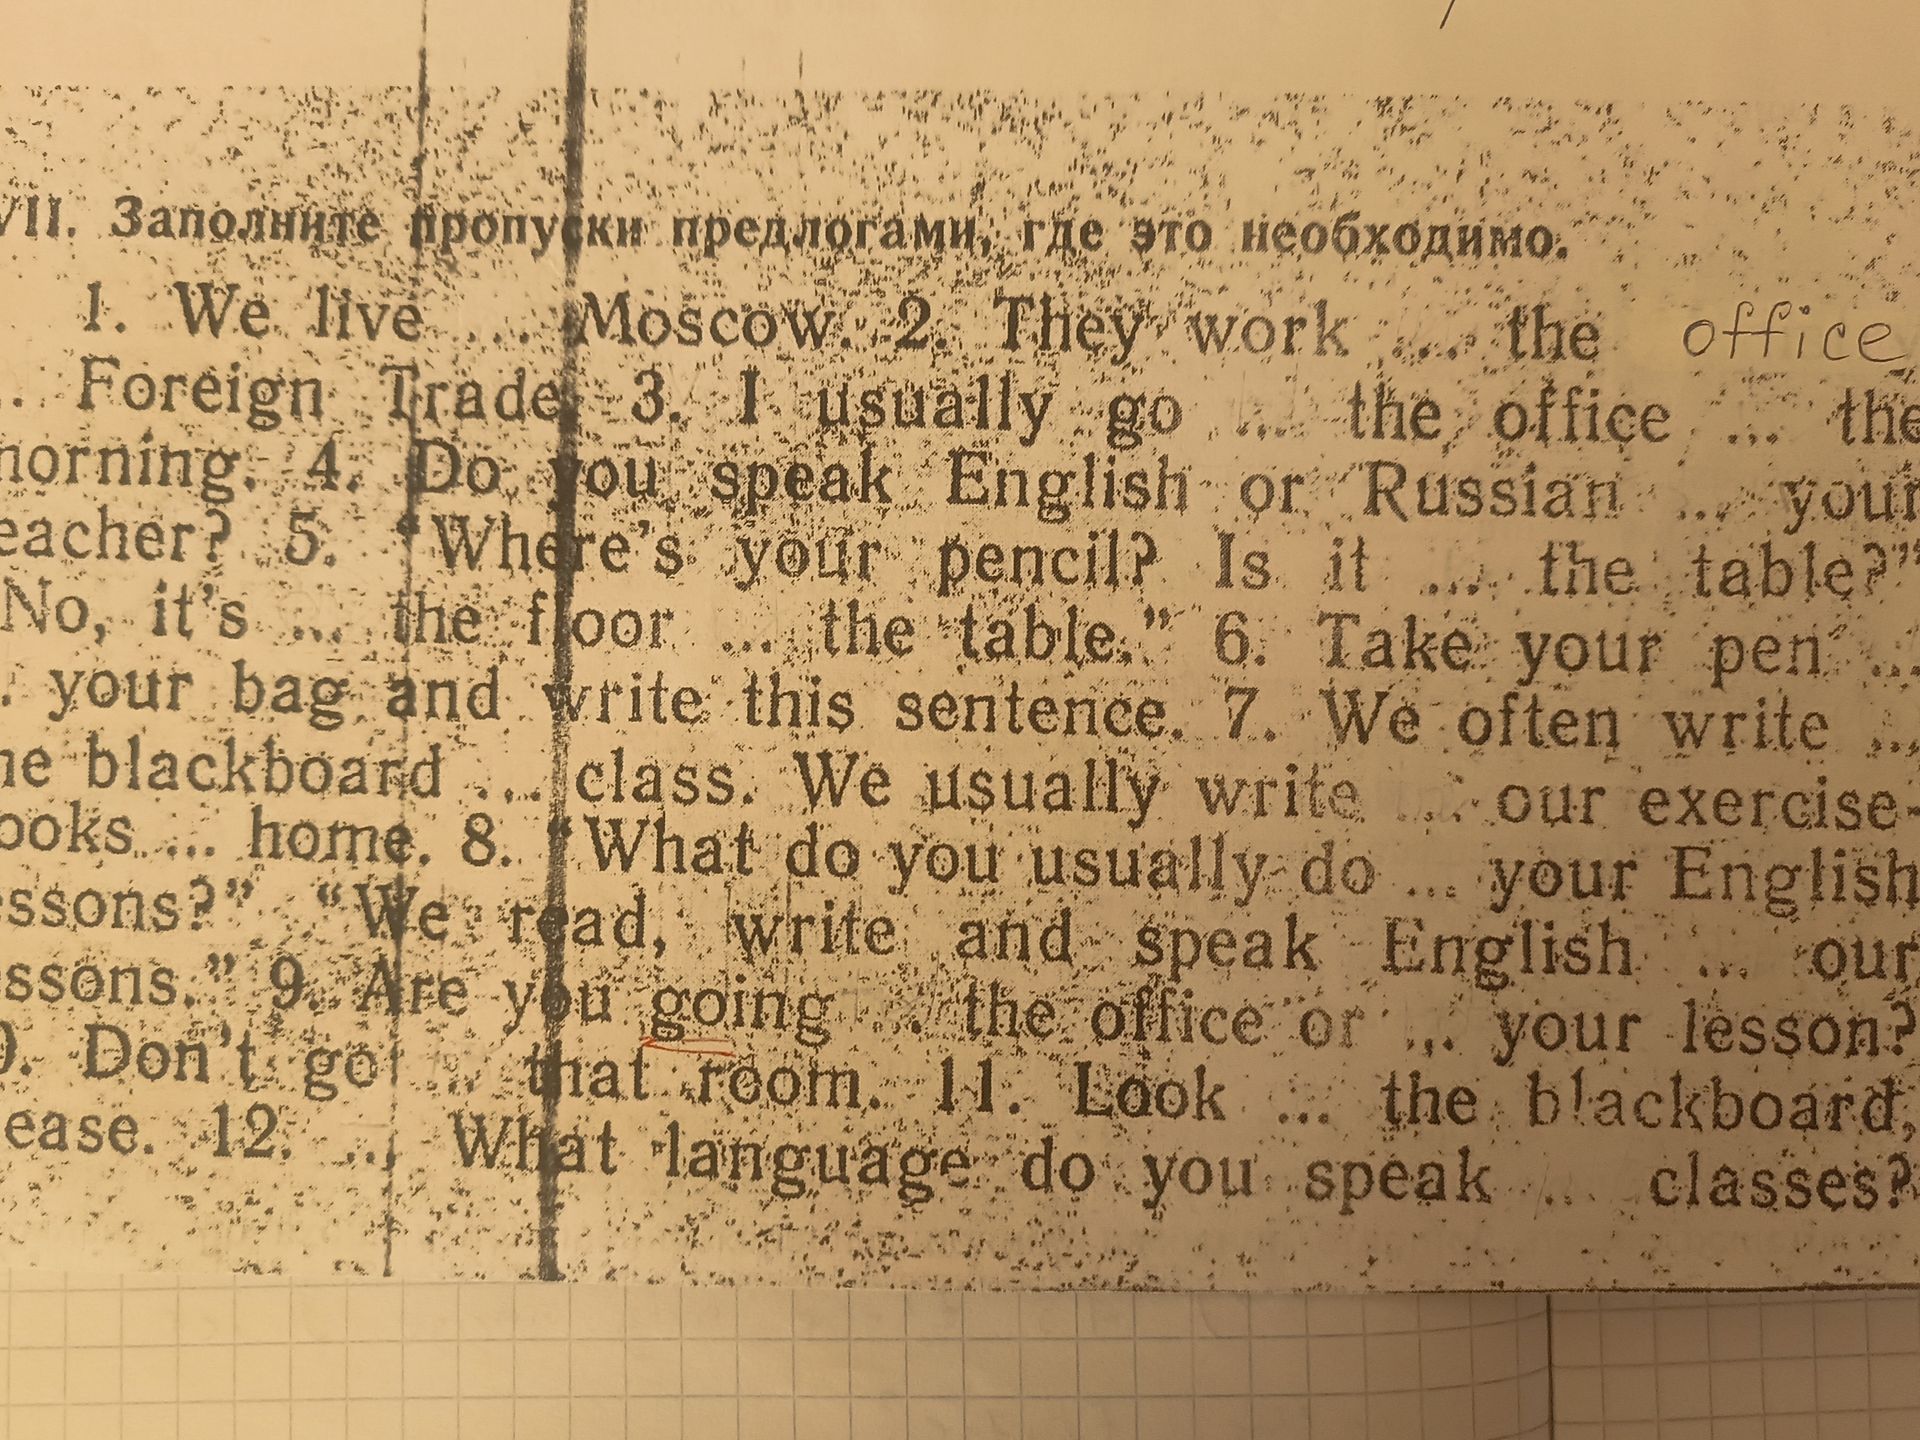 VII. Заполните пропуски предлогами, где это необходимо.
1. We live ... Moscow. 2. They work ... the office
... Foreign Trade 3. I usually go ... the office ... the
morning. 4. Do you speak English or Russian ... your
eacher? 5. “Where's your pencil? Is it ... the table?”
No, it's ... the floor ... the table.” 6. Take your pen ...
. your bag and write this sentence. 7. We often write ...
he blackboard ... class. We usually write ... our exercise-
ooks ... home. 8. “What do you usually do ... your English
essons?” “We read, write and speak English ... our
essons.” 9. Are you going ... the office or ... your lesson?
0. Don't go ... that room. 11. Look ... the blackboard,
ease. 12. ... What language do you speak ... classes?